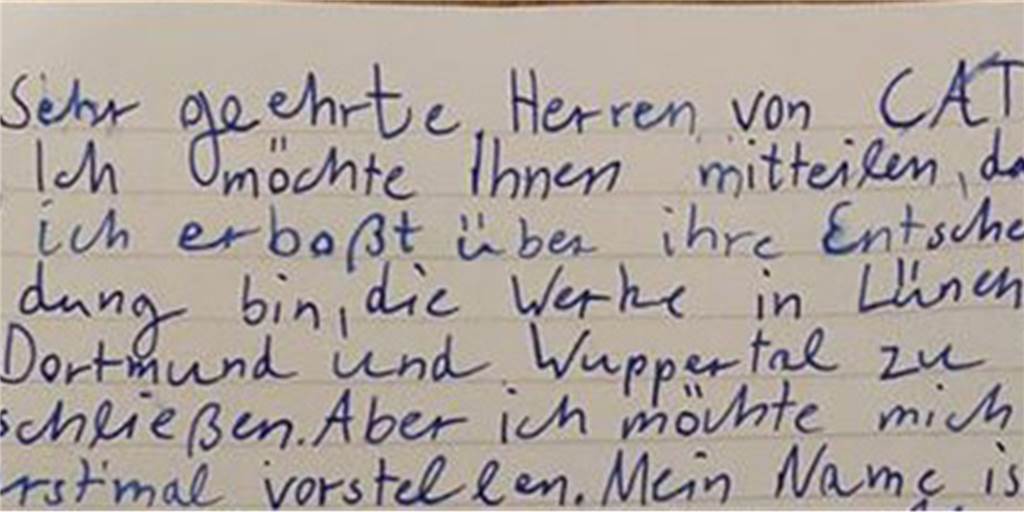 Sehr geehrte Herren von CAT
Ich möchte Ihnen mitteilen, da
ich erboßt über ihre Entsche
dung bin, die Werke in Lünen
Dortmund und Wuppertal zu
schließen. Aber ich möchte mich
rstmal vorstellen. Mein Name is